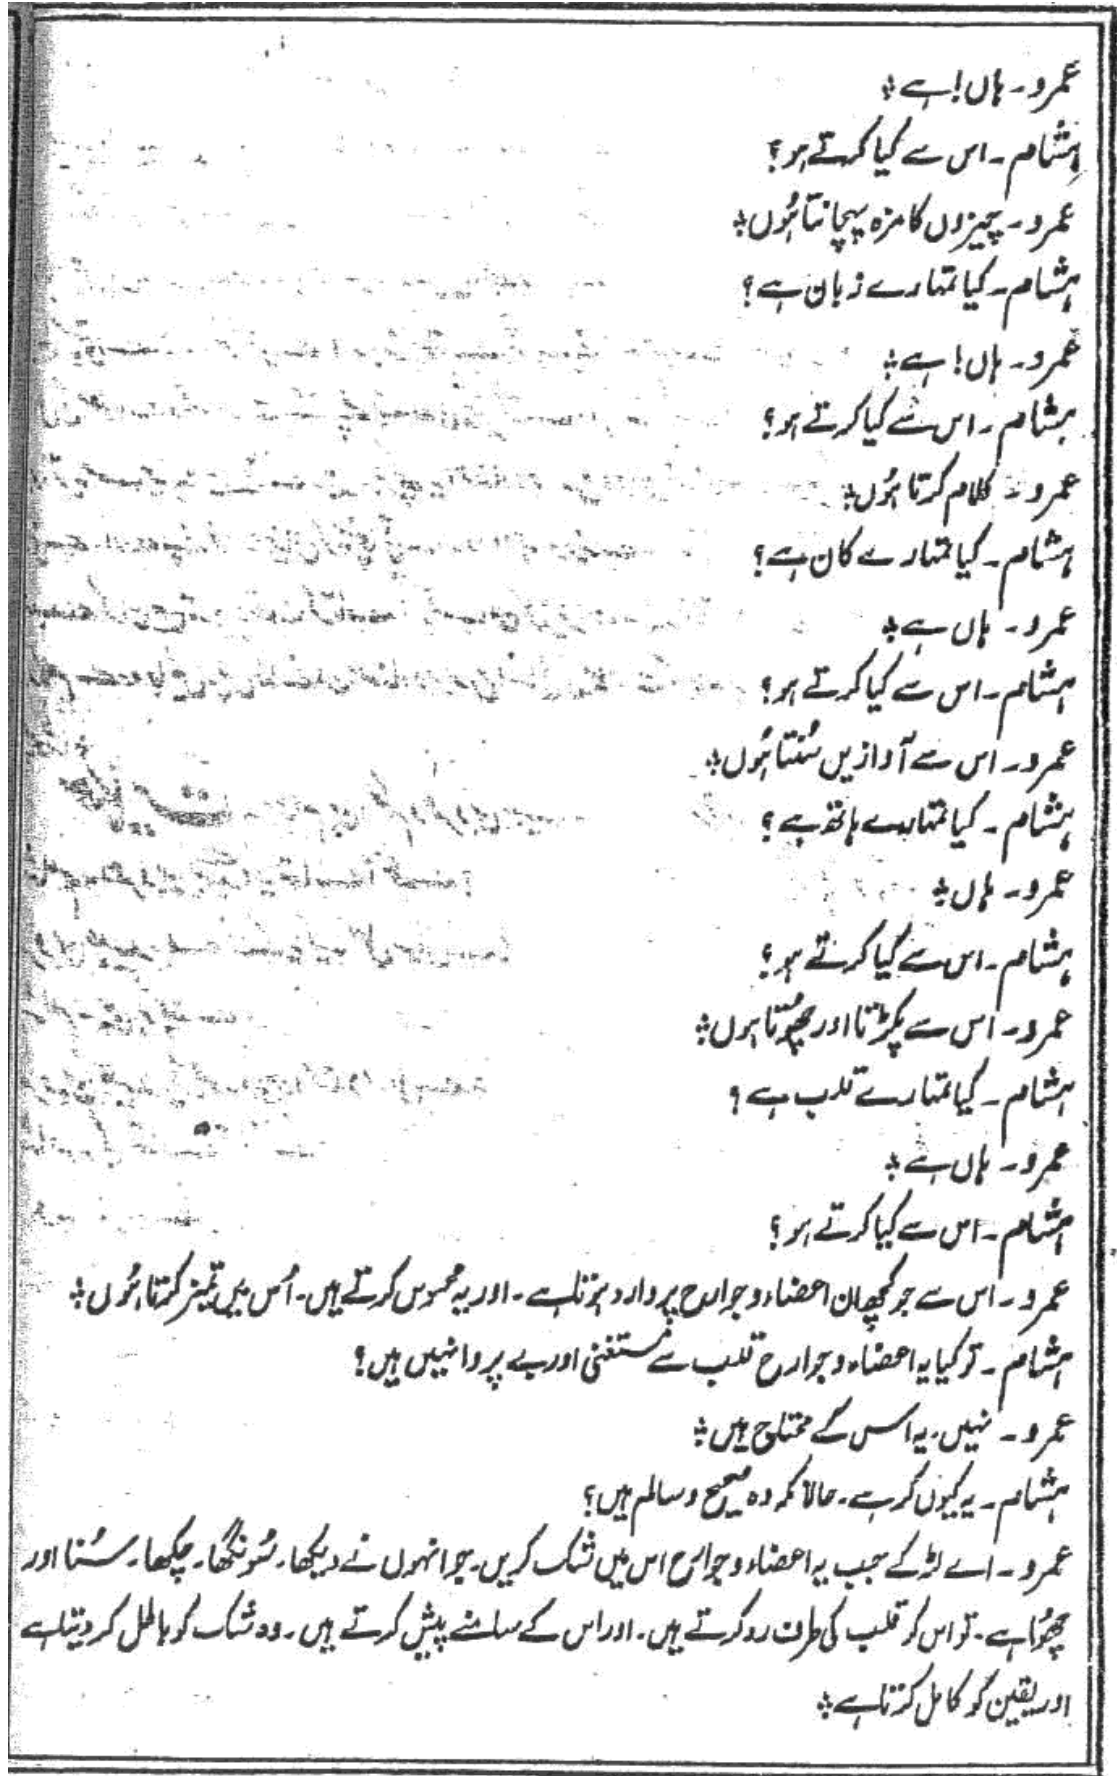 عمرو۔ ہاں! ہے ؞
ہشام۔ اس سے کیا کرتے ہو؟
عمرو۔ چیزوں کا مزہ پہچانتا ہُوں ؞
ہشام۔ کیا تمہارے زبان ہے؟
عمرو۔ ہاں! ہے ؞
ہشام۔ اس سے کیا کرتے ہو؟
عمرو۔ کلام کرتا ہُوں ؞
ہشام۔ کیا تمہارے کان ہے؟
عمرو۔ ہاں ہے ؞
ہشام۔ اس سے کیا کرتے ہو؟
عمرو۔ اس سے آوازیں سُنتا ہُوں ؞
ہشام۔ کیا تمہارے ہاتھ ہے؟
عمرو۔ ہاں ؞
ہشام۔ اس سے کیا کرتے ہو؟
عمرو۔ اس سے پکڑتا اور چھُوتا ہوں ؞
ہشام۔ کیا تمہارے قلب ہے؟
عمرو۔ ہاں ہے ؞
ہشام۔ اس سے کیا کرتے ہو؟
عمرو۔ اس سے جو کچھ ان اعضاء و جوارح پر وارد ہوتا ہے۔ اور یہ محسوس کرتے ہیں۔ اُس میں تمیز کرتا ہُوں ؞
ہشام۔ تو کیا یہ اعضاء و جوارح قلب سے مستغنی اور بے پروا نہیں ہیں؟
عمرو۔ نہیں۔ یہ اس کے محتاج ہیں ؞
ہشام۔ یہ کیوں کر ہے۔ حالانکہ وہ صحیح و سالم ہیں؟
عمرو۔ اے لڑکے جب یہ اعضاء و جوارح اس میں شک کریں۔ جو انہوں نے دیکھا۔ سُونگھا۔ چکھا۔ سُنا اور
چھُوا ہے۔ تو اس کو قلب کی طرف رد کرتے ہیں۔ اور اس کے سامنے پیش کرتے ہیں۔ وہ شک کو باطل کر دیتا ہے
اور یقین کو کامل کرتا ہے ؞